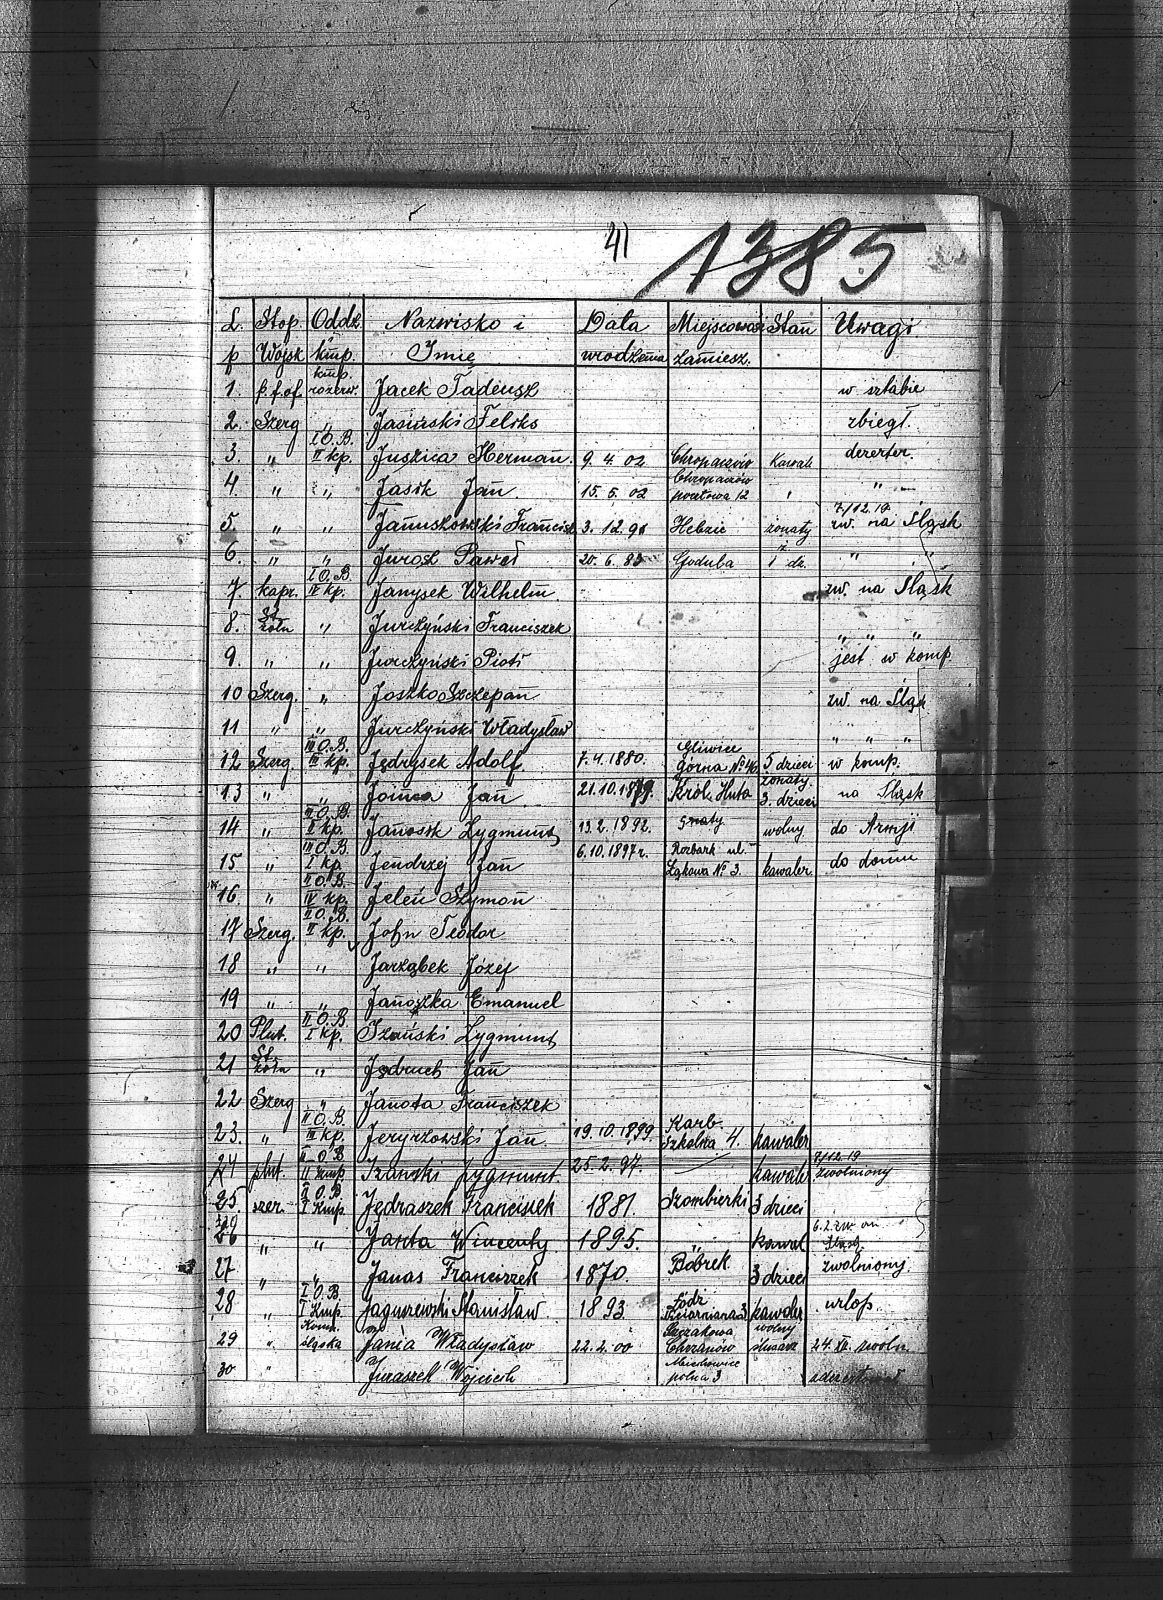 41 1385
L. Stop. Oddz. Nazwisko i Data Miejscowość Stan Uwagi
p Wojsk kmp. Imię urodzenia zamiesz.
kmp.
1. p.f.of. rozerw. Jacek Tadeusz w sztabie
2. Szerg „ Jasiński Feliks zbiegł.
I O.B.
3. „ II kp. Juszica Herman. 9. 4. 02 Chropaczów Kawal. dezerter.
Chropaczów
4. „ „ Jasik Jan 15. 5. 02 pocztowa 12 „ „
7/12.19
5. „ „ Januszkowski Francisz 3. 12. 96 Hebzie żonaty zw. na Śląsk
ż.
6. „ „ Jurosz Paweł 20. 6. 83 Godula 1 dz. „ „
I O.B.
7. kapr. IV kp. Janysek Wilhelm zw. na Śląsk
St.
8. żołn „ Jurczyński Franciszek „ „ „
9. „ „ Jurczyński Piotr jest w komp.
10 Szerg. „ Joszko Szczepan zw. na Śląsk
11 „ „ Jurczyński Władysław „ „ „
III O.B. Gliwice
12 Szerg. III kp. Jędrysek Adolf. 7. 4. 1880. Górna No 46 5 dzieci w komp.
żonaty
13 „ „ Joinca Jan 21. 10. 1879. Król. Huta 3. dzieci na Śląsk
III O.B.
14 „ II kp. Janosik Zygmunt 13. 2. 1892. wolny do Armji
III O.B. 6. 10. 1897 r. Rozbark ul.
15 „ I kp. Jendrzej Jan Łąkowa No 3. kawaler do domu
II O.B.
16. „ IV kp. Jeleń Szymon
II O.B.
17 Szerg. II kp. John Teodor
18 „ „ Jarząbek Józef
19 „ „ Janoszka Emanuel
II O.B.
20 Plut. I kp. Izański Zygmunt
St.
21 żołn „ Jędruch Jan
22 Szerg „ Janota Franciszek
II O.B. Karb.
23. „ III kp. Jeryzkowski Jan 19. 10. 1899 Szkolna 4. kawaler
II O.B 8/12.19
24 plut. II Kmp Izański Zygmunt 25. 2. 97. kawale zwolniony
II O.B.
25. szer. I Kmp. Jędraszek Franciszek 1881. Szombierki 3 dzieci
6. 2. zw. on
26 „ „ Janta Wincenty 1895. „ kawal Śląsk
27 „ „ Janas Franciszek 1870. Bobrek 3 dzieci zwolniony
I O.B. Łódź
28 „ I Kmp. Jaguszewski Stanisław 1893 kawaler urlop.
Komp. Szczakowa wolny
29 „ śląska Jania Władysław 22. 2. 00 Chrzanów ślusarz 24. XII. zwoln
Miechowice
30 „ Juraszek Wojciech polna 3